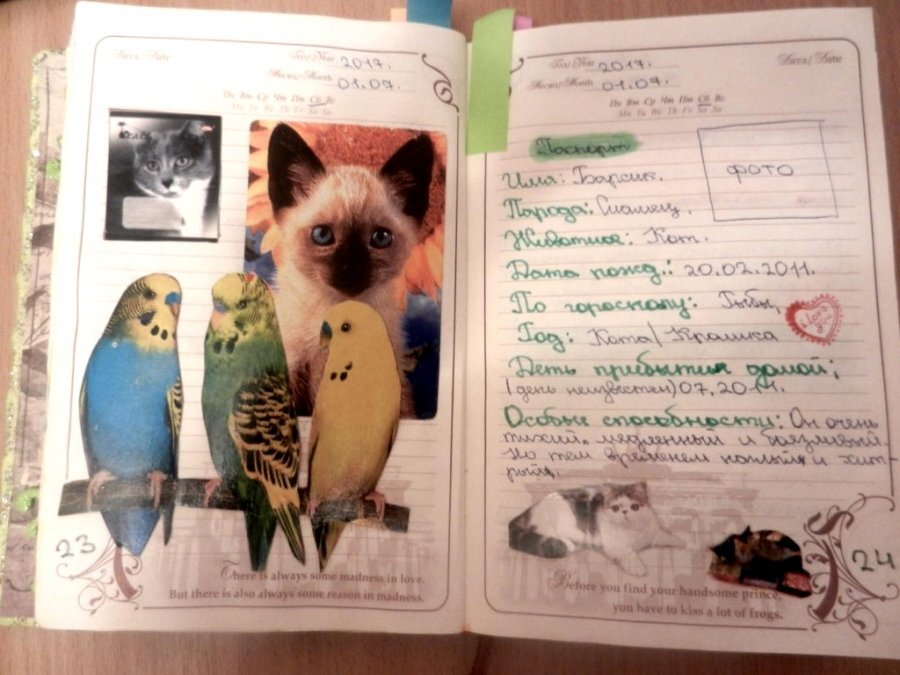 Дата/Date
Год/Year 2017.
Месяц/Month 01.07.
Пн Вт Ср Чт Пт Сб Вс
Mo Tu We Th Fr Sa Su
23
There is always some madness in love.
But there is also always some reason in madness.
Год/Year 2017.
Дата/Date
Месяц/Month 01.07.
Пн Вт Ср Чт Пт Сб Вс
Mo Tu We Th Fr Sa Su
Паспорт
ФОТО
Имя: Барсик.
Парода: Сиамец.
Животное: Кот.
Дата рожд.: 20.02.2011.
По гороскопу: Рыбы,
Год: Кота/Кролика
I love you
Деть прибытия домой:
(день неизвестен) 07.2011.
Особые способности: Он очень
тихий, медленный и боязливый.
Но тем временем наглый и хит-
рый.
Before you find your handsome prince,
you have to kiss a lot of frogs.
24